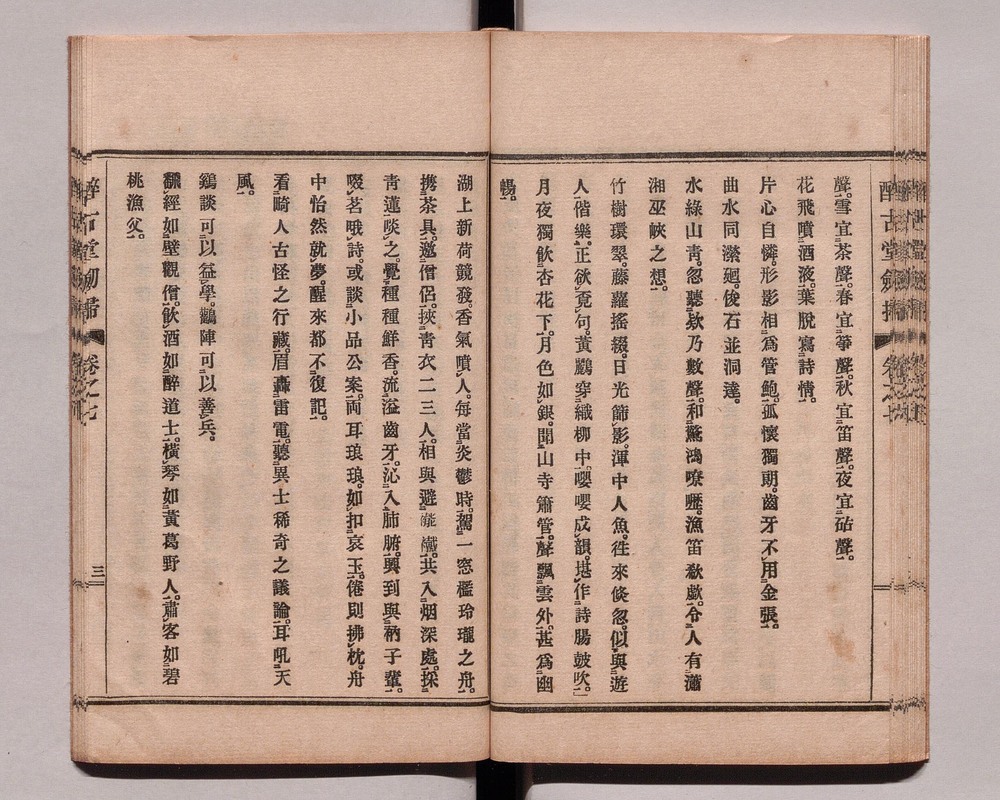 聲。雪宜茶聲。春宜箏聲。秋宜笛聲。夜宜砧聲。
花飛噴酒液。葉脫寫詩情。
片心自憐。形影相爲管鮑。孤懷獨朗。齒牙不用金張。
曲水同瀠廻。俊石並洞達。
水綠山靑。忽聽欸乃數聲。和驚鴻嘹嚦。漁笛欷歔。令人有瀟
湘巫峽之想。
竹樹環翠。藤蘿搖綴。日光篩影。渾中人魚。徃來倏忽。似與遊
人偕樂。正欲覓句。黃鸝穿織柳中。嚶嚶成韻。堪作詩腸鼓吹。
月夜獨飮杏花下。月色如銀。聞山寺簫管。聲飄雲外。甚爲幽
暢。
湖上新荷競發。香氣噴人。每當炎鬱時。駕一窓檻玲瓏之舟。
携茶具。邀僧侶。挾靑衣二三人。相與避 共入烟深處。採
靑蓮啖之。覺種種鮮香。流溢齒牙。沁入肺腑。興到與衲子輩。
啜茗哦詩。或談小品公案。両耳琅琅。如扣哀玉。倦則拂枕。舟
中怡然就夢。醒來都不復記。
看畸人古怪之行藏。眉轟雷電。聽異士稀奇之議論。耳吼天
風。
鷄談可以益學。鸛陣可以善兵。
飜經如壁觀僧。飮酒如醉道士。橫琴如黃葛野人。肅客如碧
桃漁父。
醉古堂劒掃
卷之七
三